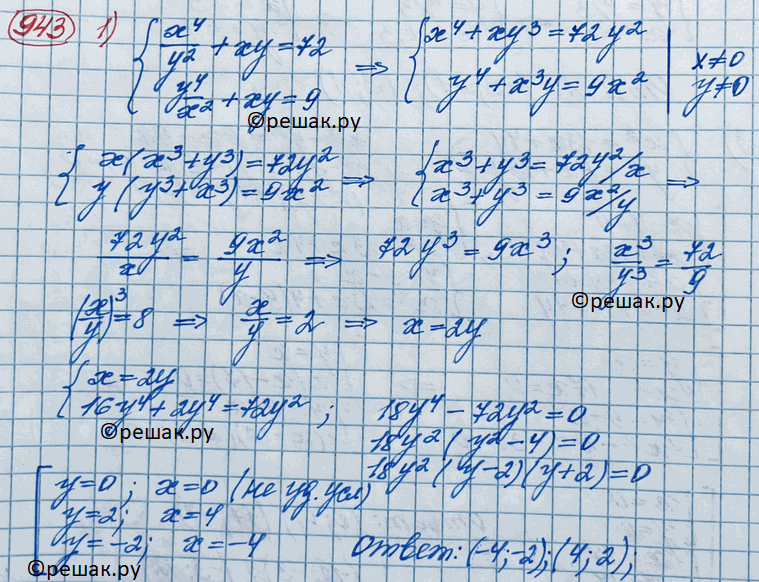 943 1) { x⁴/y² + xy = 72 ⇒ { x⁴ + xy³ = 72y² | x≠0
y⁴/x² + xy = 9 y⁴ + x³y = 9x² | y≠0
©решак.ру
{ x(x³+y³) = 72y² ⇒ { x³+y³ = 72y²/x ⇒
y(y³+x³) = 9x² x³+y³ = 9x²/y
72y²/x = 9x²/y ⇒ 72y³ = 9x³; x³/y³ = 72/9
©решак.ру
(x/y)³ = 8 ⇒ x/y = 2 ⇒ x = 2y
{ x = 2y
16y⁴ + 2y⁴ = 72y²; 18y⁴ − 72y² = 0
©решак.ру
18y²(y²−4) = 0
18y²(y−2)(y+2) = 0
[ y = 0; x = 0 (не уд. усл)
y = 2; x = 4
y = −2; x = −4 Ответ: (−4; −2); (4; 2);
©решак.ру